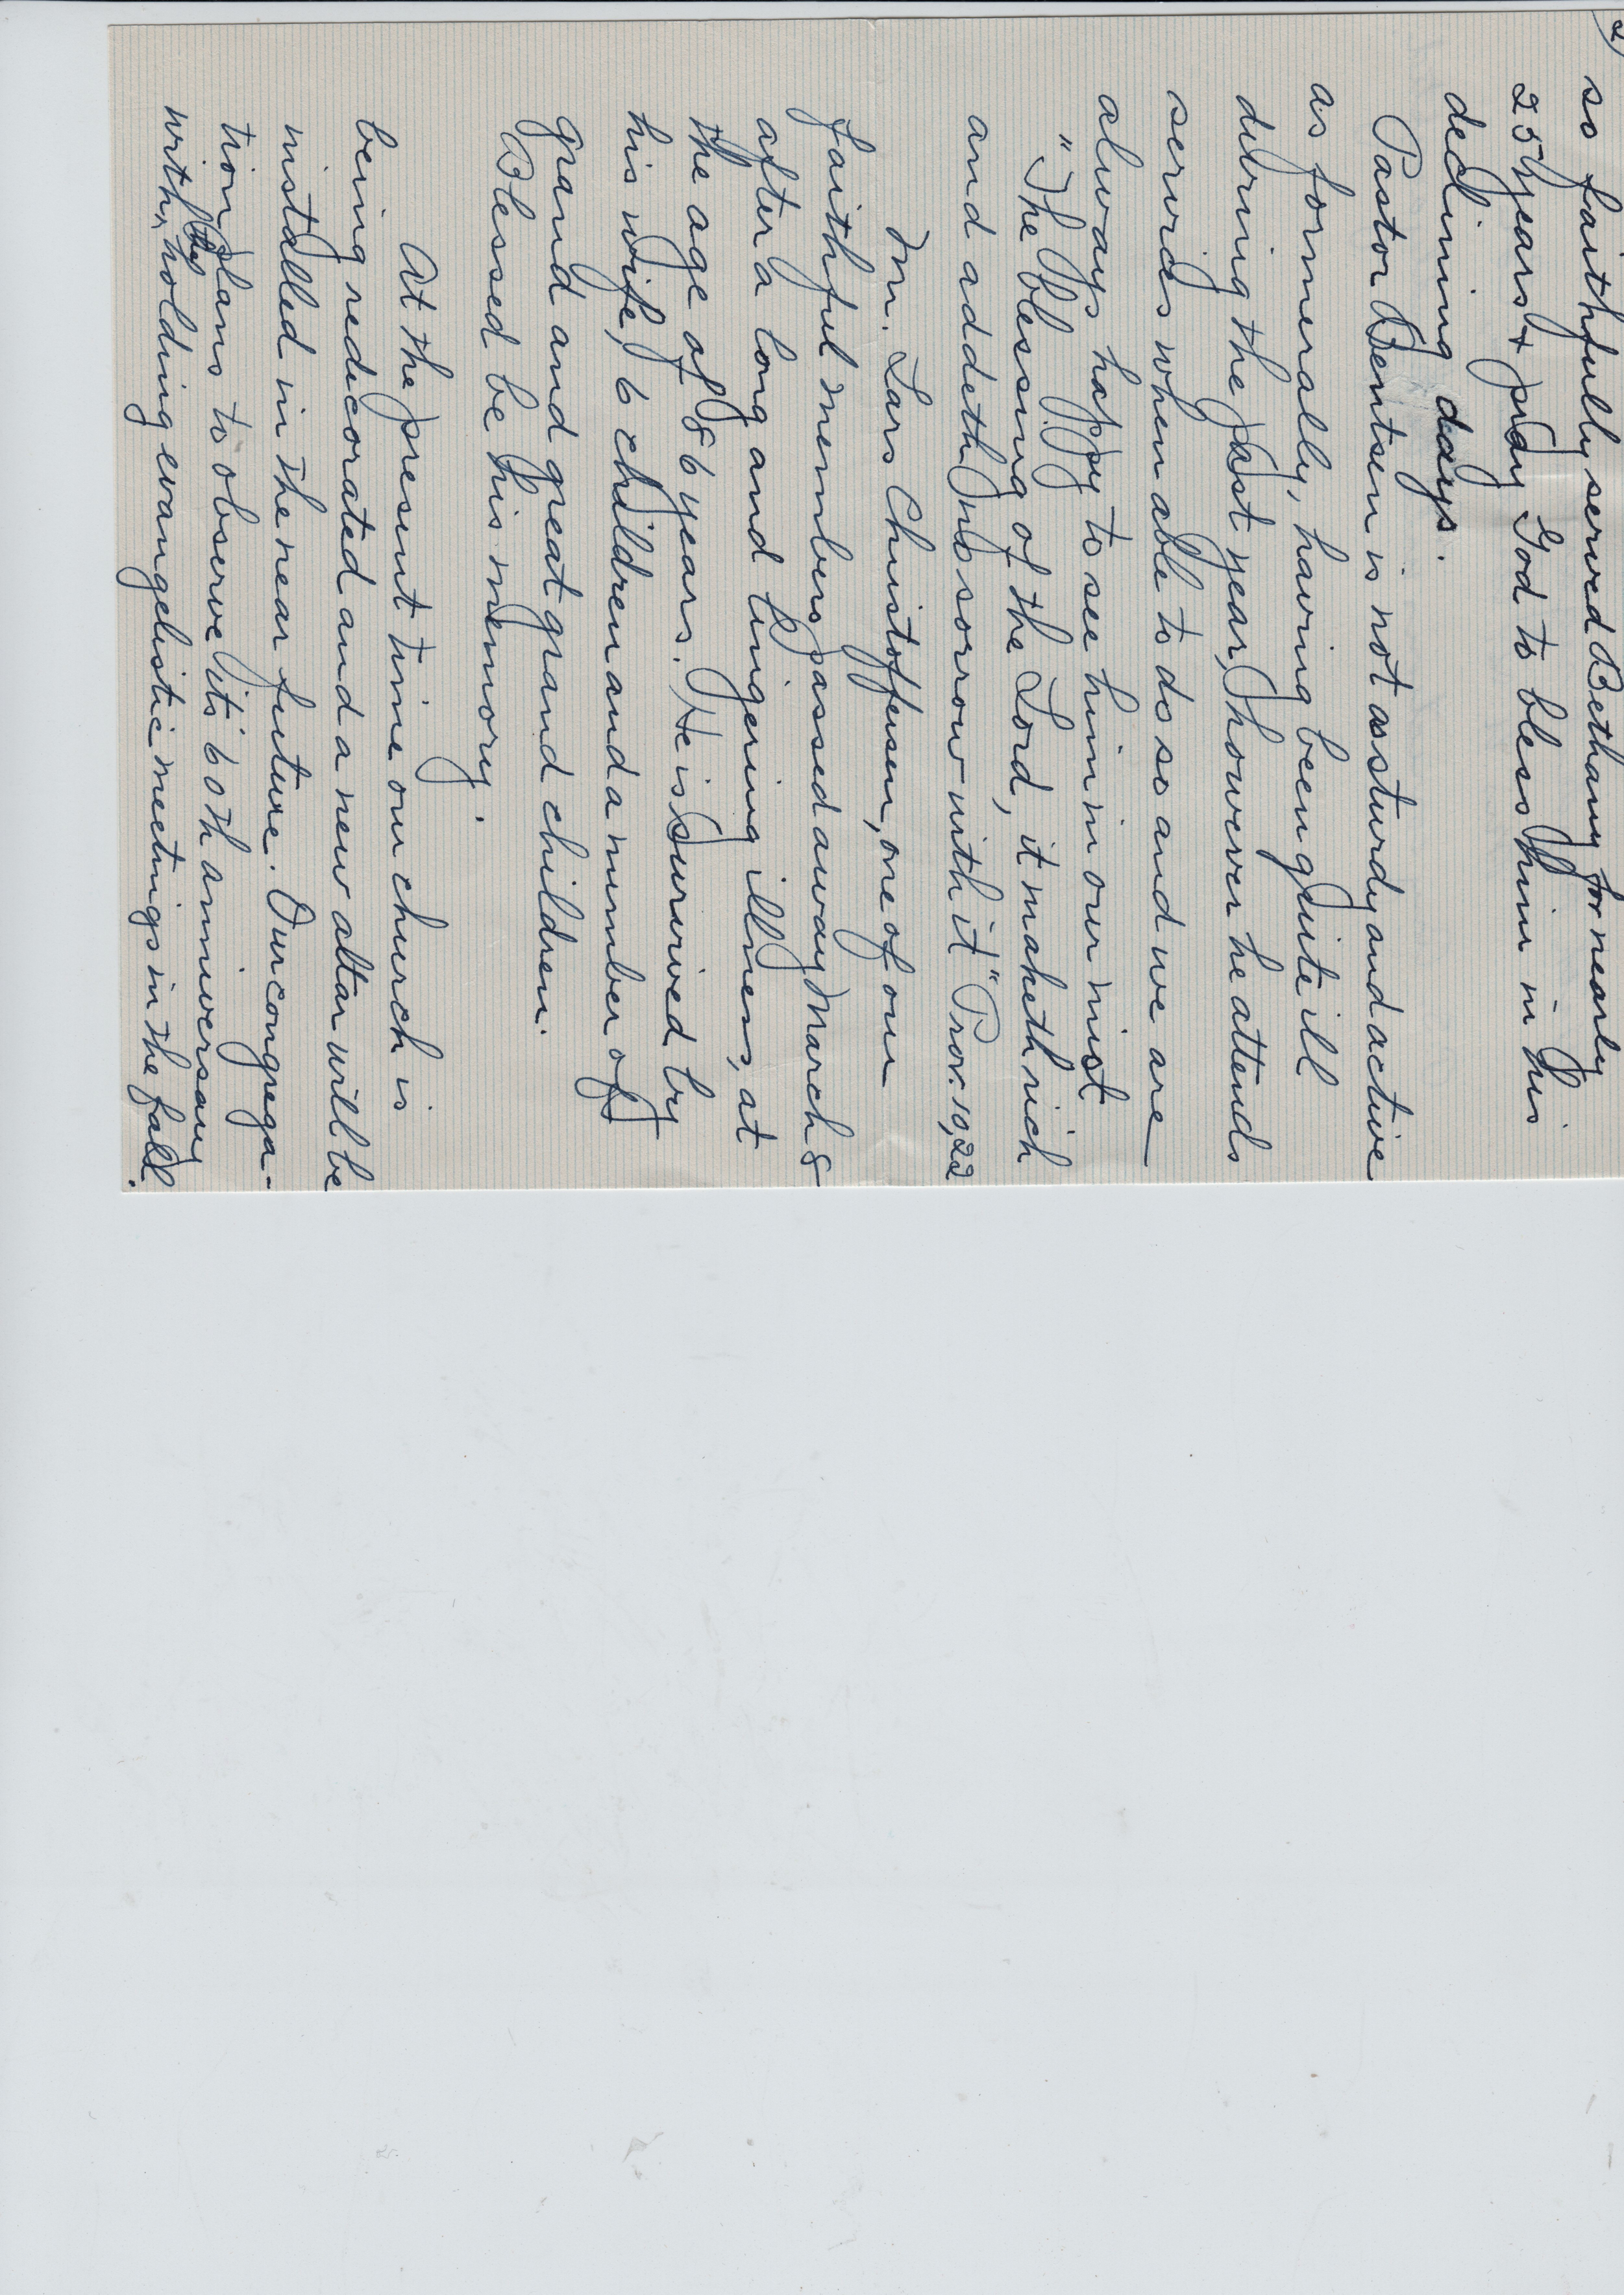 2)
so faithfully served Bethany for nearly
25 years & pray God to bless him in his
declining days.
Pastor Bentsen is not as sturdy and active
as formerally, having been quite ill
during the past year, however he attends
services when able to do so and we are
always happy to see him in our midst
"The blessing of the Lord, it maketh rich
and addeth no sorrow with it" Prov. 10,22
Mr. Lars Christoffersen, one of our
faithful members passed away March 8
after a long and lingering illness, at
the age of 86 years. He is survived by
his wife, 6 children and a number of
grand and great grand children.
Blessed be his memory.
At the present time our church is
being redecorated and a new altar will be
installed in the near future. Our congrega-
tion plans to observe its 60th anniversary
with the holding evangelistic meetings in the fall.